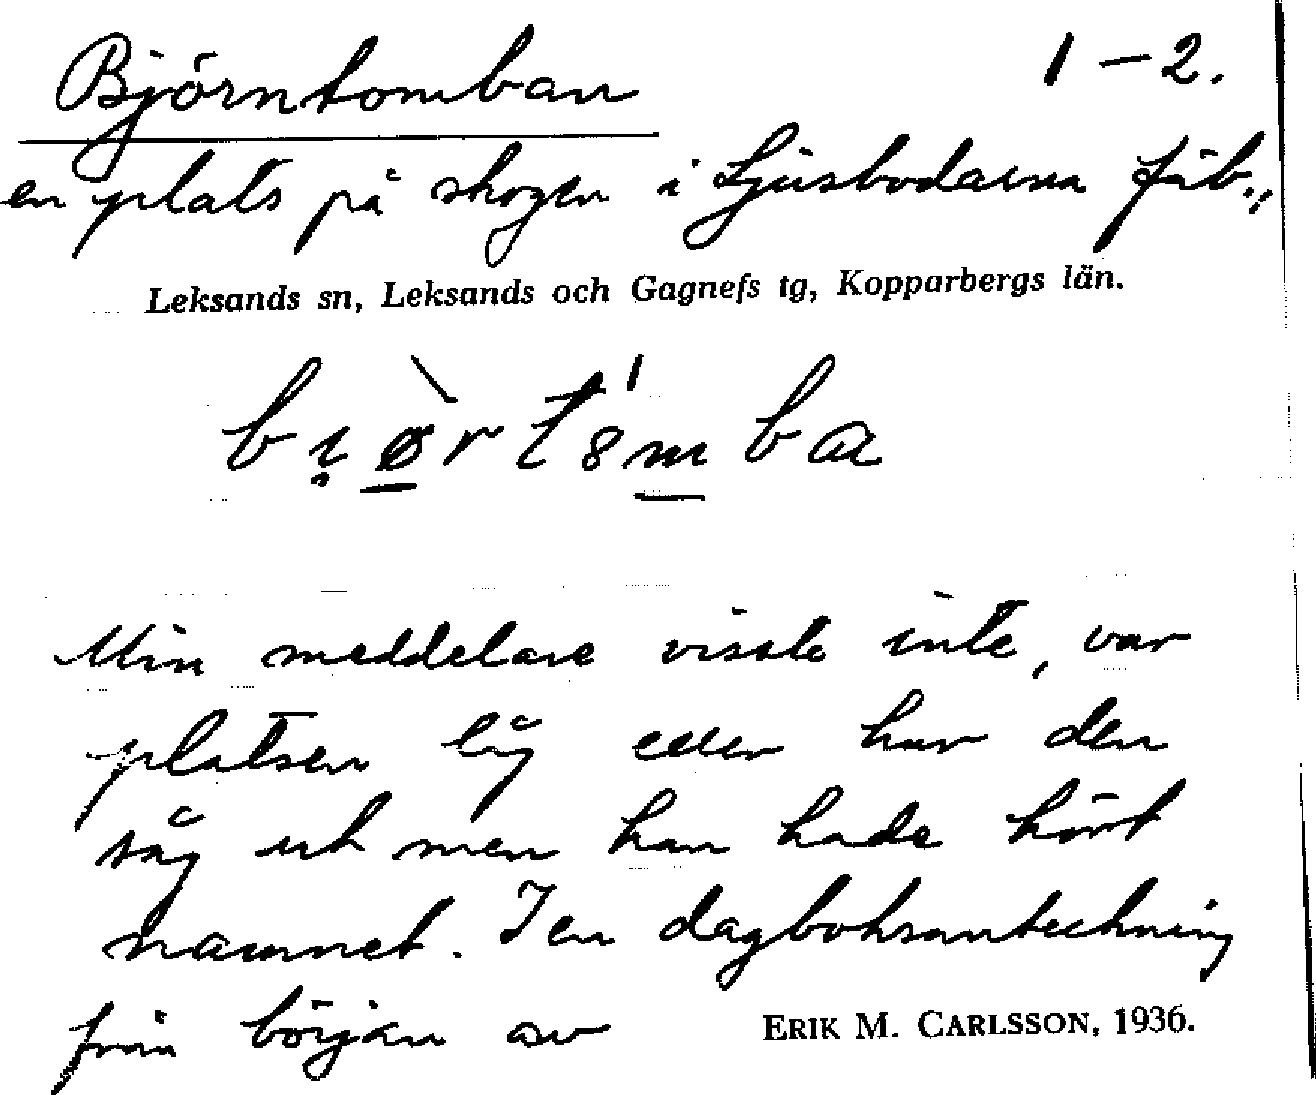 Björntomban 1–2.
en plats på skogen i Ljusbodarna fäb.,
Leksands sn, Leksands och Gagnefs tg, Kopparbergs län.
Min meddelare visste inte, var
platsen låg eller hur den
såg ut men han hade hört
namnet. I en dagboksanteckning
från början av
ERIK M. CARLSSON, 1936.